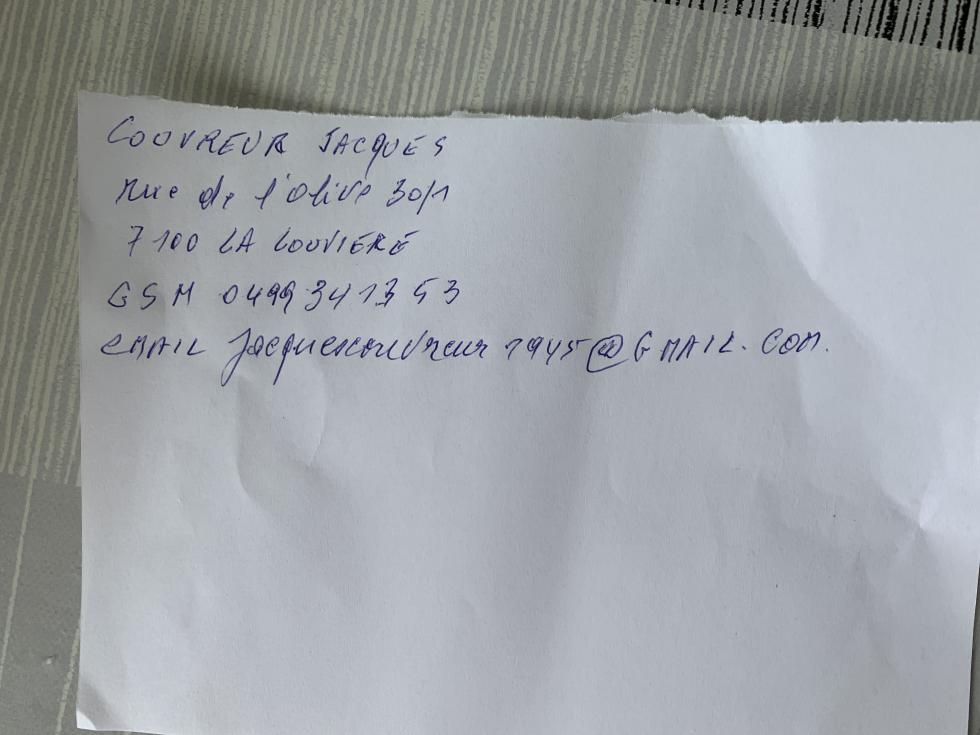 COUVREUR JACQUES
rue de l'olive 30/1
7100 LA LOUVIERE
GSM 0499341353
EMAIL jacquescouvreur1945@GMAIL.COM.